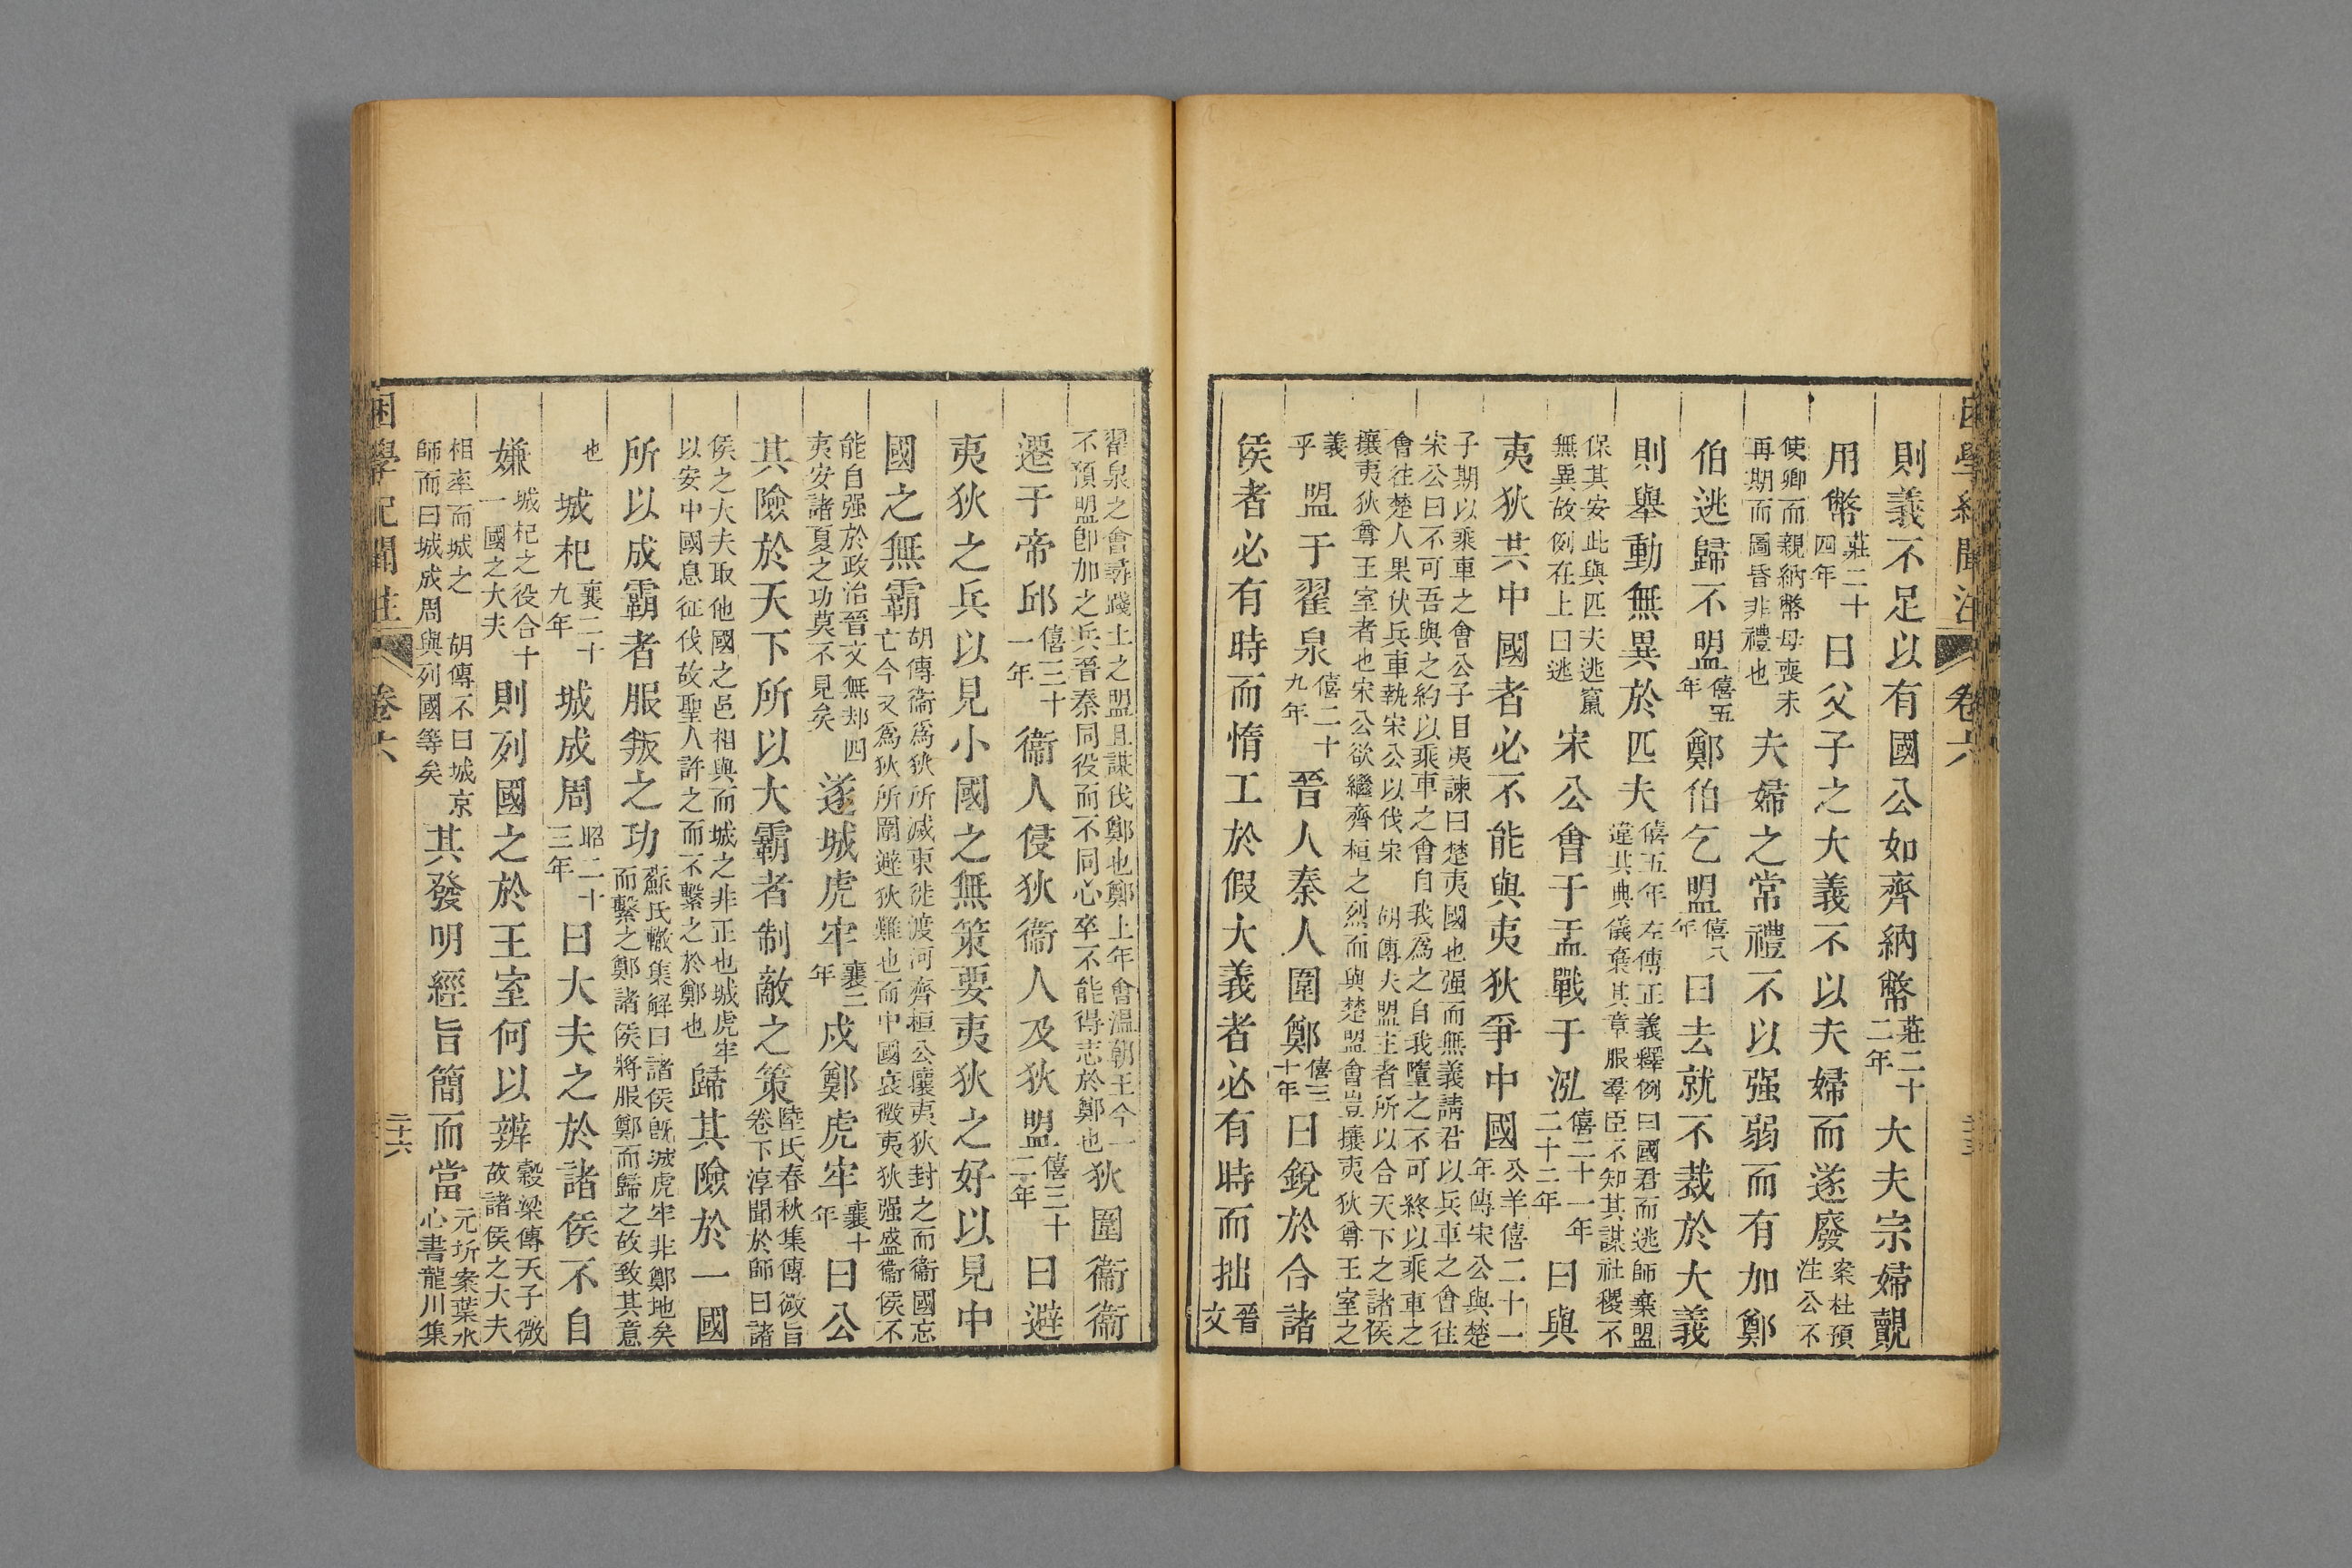 困學紀聞注 卷六
則義不足以有國公如齊納幣莊二十二年大夫宗婦覿
用幣莊二十四年曰父子之大義不以夫婦而遂廢案杜預注公不
使卿而親納幣母喪未再期而圖昏非禮也夫婦之常禮不以强弱而有加鄭
伯逃歸不盟僖五年鄭伯乞盟僖八年曰去就不裁於大義
則舉動無異於匹夫僖五年左傳正義釋例曰國君而逃師棄盟違其典儀棄其章服羣臣不知其謀社稷不
保其安此與匹夫逃竄無異故例在上曰逃宋公會于盂戰于泓僖二十一年二十二年曰與
夷狄共中國者必不能與夷狄爭中國公羊僖二十一年傳宋公與楚
子期以乘車之會公子目夷諫曰楚夷國也强而無義請君以兵車之會往宋公曰不可吾與之約以乘車之會自我爲之自我墮之不可終以乘車之
會往楚人果伏兵車執宋公以伐宋 胡傳夫盟主者所以合天下之諸侯攘夷狄尊王室者也宋公欲繼齊桓之烈而與楚盟會豈攘夷狄尊王室之
義乎盟于翟泉僖二十九年晉人秦人圍鄭僖三十年曰銳於合諸
侯者必有時而惰工於假大義者必有時而拙晉文
翟泉之會尋踐土之盟且謀伐鄭也鄭上年會溫朝王今一不預盟卽加之兵晉秦同役而不同心卒不能得志於鄭也狄圍衞衞
遷于帝邱僖三十一年衞人侵狄衞人及狄盟僖三十二年曰避
夷狄之兵以見小國之無策要夷狄之好以見中
國之無霸胡傳衞爲狄所滅東徙渡河齊桓公攘夷狄封之而衞國忘亡今又爲狄所圍避狄難也而中國衰微夷狄强盛衞侯不
能自强於政治晉文無却四夷安諸夏之功莫不見矣遂城虎牢襄二年戍鄭虎牢襄十年曰公
其險於天下所以大霸者制敵之策陸氏春秋集傳微旨卷下淳聞於師曰諸
侯之大夫取他國之邑相與而城之非正也城虎牢以安中國息征伐故聖人許之而不繫之於鄭也歸其險於一國
所以成霸者服叛之功蘇氏轍集解曰諸侯旣城虎牢非鄭地矣而繫之鄭諸侯將服鄭而歸之故致其意
也城杞襄二十九年城成周昭三十二年曰大夫之於諸侯不自
嫌城杞之役合十一國之大夫則列國之於王室何以辨穀梁傳天子微故諸侯之大夫
相率而城之 胡傳不曰城京師而曰城成周與列國等矣其發明經旨簡而當元圻案葉水心書龍川集
困學紀聞注 卷六 二十六